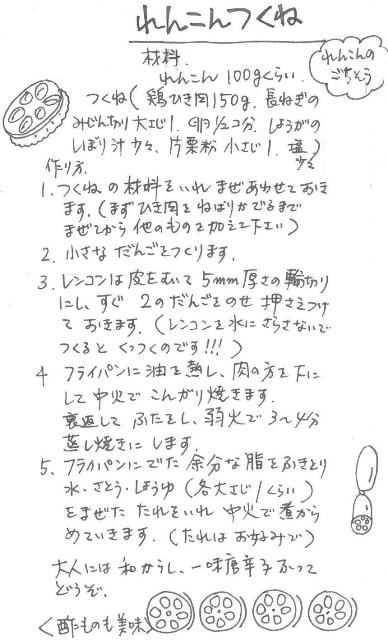 れんこんつくね
れんこんの
ごちそう
材料.
れんこん 100gくらい.
つくね(鶏ひき肉150g. 長ねぎの
みじん切り大さじ1. 卵1/2コ分. しょうがの
しぼり汁少々、片栗粉 小さじ1. 塩少々)
作り方.
1. つくねの材料をいれ まぜあわせておき
ます。(まずひき肉をねばりがでるまで
まぜてから他のものを加えて下さい)
2. 小さな だんごをつくります.
3. レンコンは皮をむいて 5mm厚さの輪切り
にし、すぐ 2のだんごをのせ 押さえつけ
て おきます. (レンコンを水にさらさないで
つくると くっつくのです!!!)
4 フライパンに油を熱し、肉の方を下に
して中火で こんがり焼きます.
裏返して ふたをし、弱火で3〜4分
蒸し焼きにします.
5. フライパンにでた 余分な脂をふきとり
水・さとう・しょうゆ (各大さじ1くらい)
をまぜた たれをいれ 中火で煮から
めていきます. (たれはお好みで)
大人には 和からし、一味唐辛子ふって
どうぞ.
<酢のものも美味>